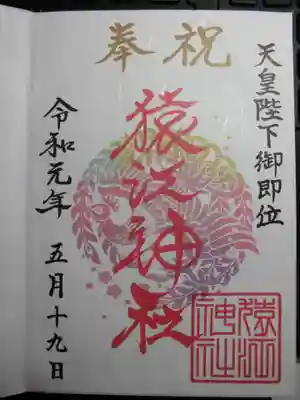 天皇陛下御即位
奉祝
猿江神社
猿江
神社
令和元年 五月十九日